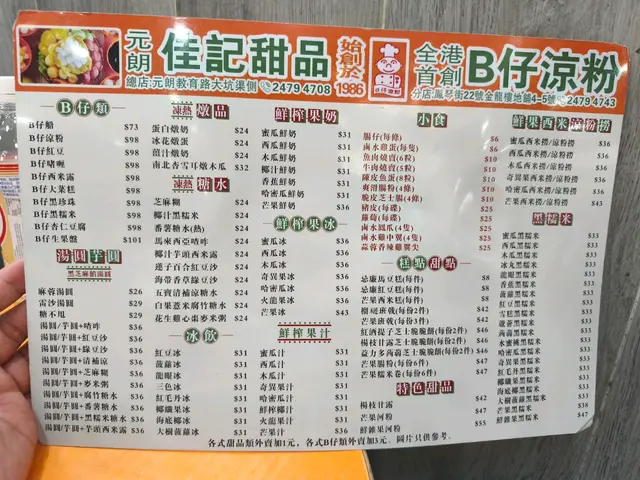 元朗
佳記甜品
始創於
1986
全港首創
B仔涼粉
B仔涼粉
總店:元朗教育路大坑渠側 2479 4708
分店:鳳琴街22號金龍樓地舖4-5號 2479 4743
B仔類
B仔船 $73
B仔涼粉 $98
B仔紅豆 $98
B仔啫喱 $98
B仔西米露 $98
B仔大菜糕 $98
B仔黑珍珠 $98
B仔黑糯米 $98
B仔杏仁豆腐 $98
B仔生果盤 $101
湯圓芋圓
黑芝麻餡湯圓
麻蓉湯圓 $26
雷沙湯圓 $29
糖不甩 $29
湯圓/芋圓+喳咋 $36
湯圓/芋圓+紅豆沙 $36
湯圓/芋圓+綠豆沙 $36
湯圓/芋圓+芝麻糊 $36
湯圓/芋圓+麥米粥 $36
湯圓/芋圓+腐竹糖水 $36
湯圓/芋圓+番薯糖水 $36
湯圓/芋圓+黑糯米糖水 $36
湯圓/芋圓+芋頭西米露 $36
凍熱 燉品
蛋白燉奶 $24
冰花燉蛋 $24
薑汁燉奶 $24
南北杏雪耳燉木瓜 $32
凍熱 糖水
芝麻糊 $24
椰汁黑糯米 $24
番薯糖水(熱) $24
馬來西亞喳咋 $24
椰汁芋頭西米露 $24
蓮子百合紅豆沙 $24
海帶香草綠豆沙 $24
五寶清補涼糖水 $24
白果薏米腐竹糖水 $24
花生雞心棗麥米粥 $24
冰飲
紅豆冰 $31
菠蘿冰 $31
龍眼冰 $31
三色冰 $31
紅毛丹冰 $31
椰纖果冰 $31
海底椰冰 $31
大樹菠蘿冰 $31
鮮榨果奶
蜜瓜鮮奶 $31
西瓜鮮奶 $31
木瓜鮮奶 $31
椰汁鮮奶 $31
香蕉鮮奶 $31
哈密瓜鮮奶 $31
芒果鮮奶 $36
鮮榨果冰
蜜瓜冰 $36
西瓜冰 $36
木瓜冰 $36
奇異果冰 $36
哈密瓜冰 $36
火龍果冰 $36
芒果冰 $43
鮮榨果汁
蜜瓜汁 $31
西瓜汁 $31
木瓜汁 $31
奇異果汁 $31
哈密瓜汁 $31
鮮榨椰汁 $31
火龍果汁 $31
芒果汁 $36
小食
腸仔(每條) $6
鹵水雞蛋(每隻) $6
魚肉燒賣(6粒) $10
牛肉燒賣(5粒) $10
陳皮魚蛋(8粒) $10
爽滑腸粉(4條) $10
脆皮芝士腸(4條) $10
豬皮(每碟) $25
蘿蔔(每碟) $25
鹵水鳳爪(每碟) $25
鹵水雞中翼(4隻) $25
蒜蓉香辣雞翼尖 $25
糕點甜點
忌廉馬豆糕(每件) $8
忌廉芒果糕(每件) $8
芒果西米糕(每件) $8
榴槤班戟(每份2件) $42
芒果班戟(每份3件) $42
紅酒提子芝士脆脆餅(每份2件) $46
楊枝甘露芝士脆脆餅(每份2件) $46
益力多蒟蒻芝士脆脆餅(每份2件) $46
芒果腸粉(每份6件) $51
芒果糯米卷(每份6件) $51
特色甜品
楊枝甘露 $42
芒果河粉 $47
鮮雜果河粉 $55
鮮果西米涼粉撈
蜜瓜西米撈/涼粉撈 $36
西瓜西米撈/涼粉撈 $36
木瓜西米撈/涼粉撈 $36
奇異果西米撈/涼粉撈 $36
哈密瓜西米撈/涼粉撈 $36
芒果西米撈/涼粉撈 $43
黑糯米
蜜瓜黑糯米 $31
西瓜黑糯米 $31
木瓜黑糯米 $31
冰丸黑糯米 $31
龍眼黑糯米 $31
香蕉黑糯米 $31
菠蘿黑糯米 $31
紅豆黑糯米 $31
雪糕黑糯米 $31
蘆薈黑糯米 $31
蒟蒻黑糯米 $31
水蜜桃黑糯米 $31
哈密瓜黑糯米 $31
奇異果黑糯米 $31
紅毛丹黑糯米 $31
椰纖果黑糯米 $31
海底椰黑糯米 $31
大樹菠蘿黑糯米 $31
芒果黑糯米 $38
鮮雜果黑糯米 $48
各式甜品類外賣加1元，各式B仔類外賣加3元。圖片只供參考。